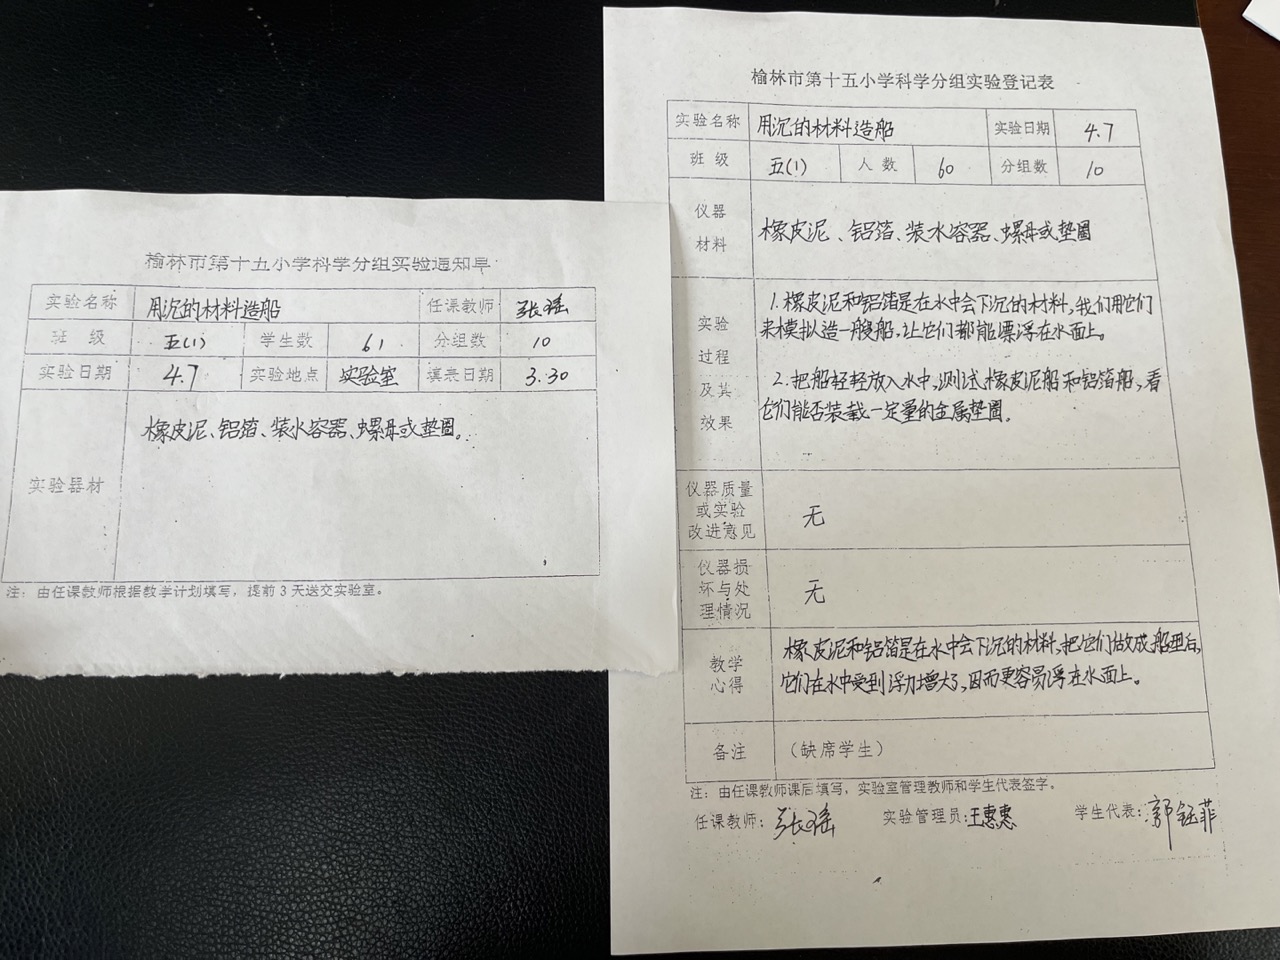 榆林市第十五小学科学分组实验通知单
实验名称 用沉的材料造船 任课教师 张瑶
班 级 五(1) 学生数 61 分组数 10
实验日期 4.7 实验地点 实验室 填表日期 3.30
实验器材 橡皮泥、铝箔、装水容器、螺母或垫圈。
注：由任课教师根据教学计划填写，提前 3 天送交实验室。
榆林市第十五小学科学分组实验登记表
实验名称 用沉的材料造船 实验日期 4.7
班 级 五(1) 人 数 60 分组数 10
仪器
材料
橡皮泥、铝箔、装水容器、螺母或垫圈
实验
过程
及其
效果
1.橡皮泥和铝箔是在水中会下沉的材料,我们用它们
来模拟造一艘船,让它们都能漂浮在水面上。
2.把船轻轻放入水中,测试橡皮泥船和铝箔船,看
它们能否装载一定量的金属垫圈。
仪器质量
或实验
改进意见
无
仪器损
坏与处
理情况
无
教学
心得
橡皮泥和铝箔是在水中会下沉的材料,把它们做成船型后,
它们在水中受到浮力增大了,因而更容易浮在水面上。
备注 （缺席学生）
注：由任课教师课后填写，实验室管理教师和学生代表签字。
任课教师：张瑶 实验管理员：王惠惠 学生代表：郭钰菲